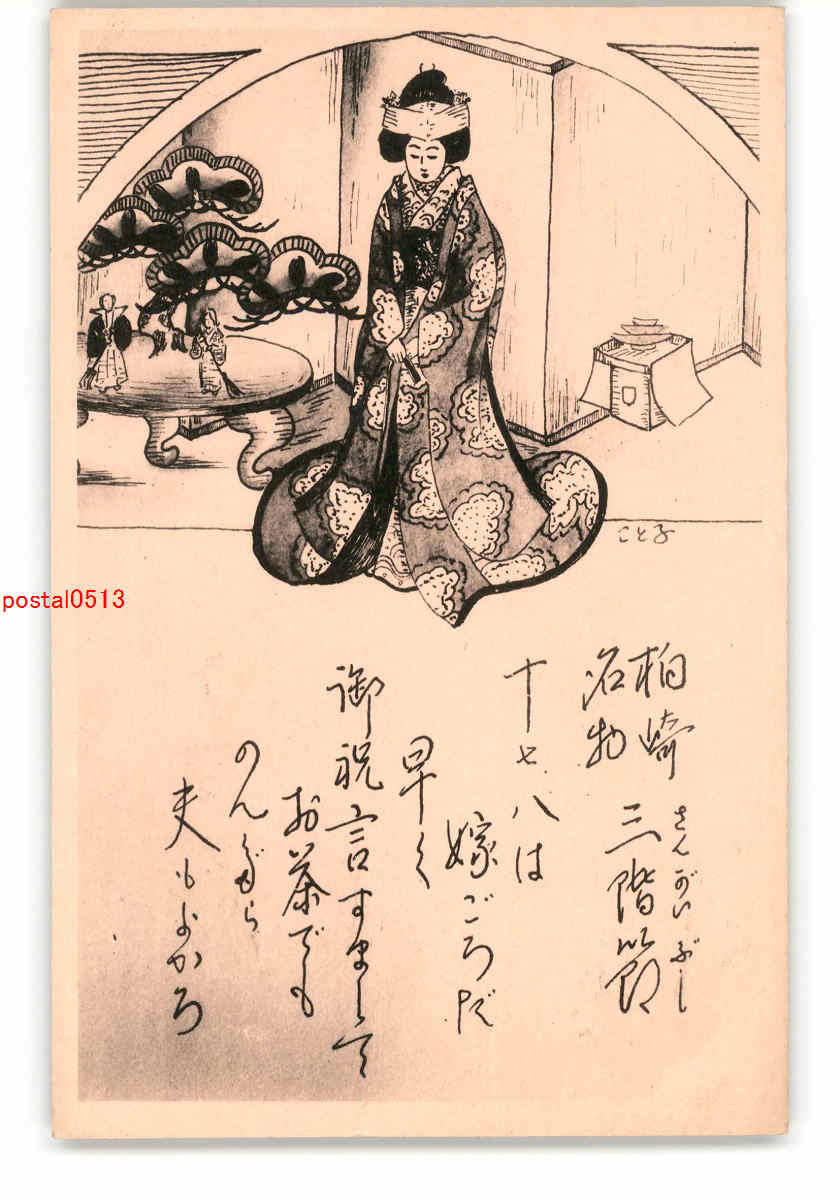 こと子
postal0513
柏崎
名物
三階節
さんがいぶし
十七、八は
嫁ごろだ
早く
御祝言すまして
お茶でも
のんだら
夫もよかろ